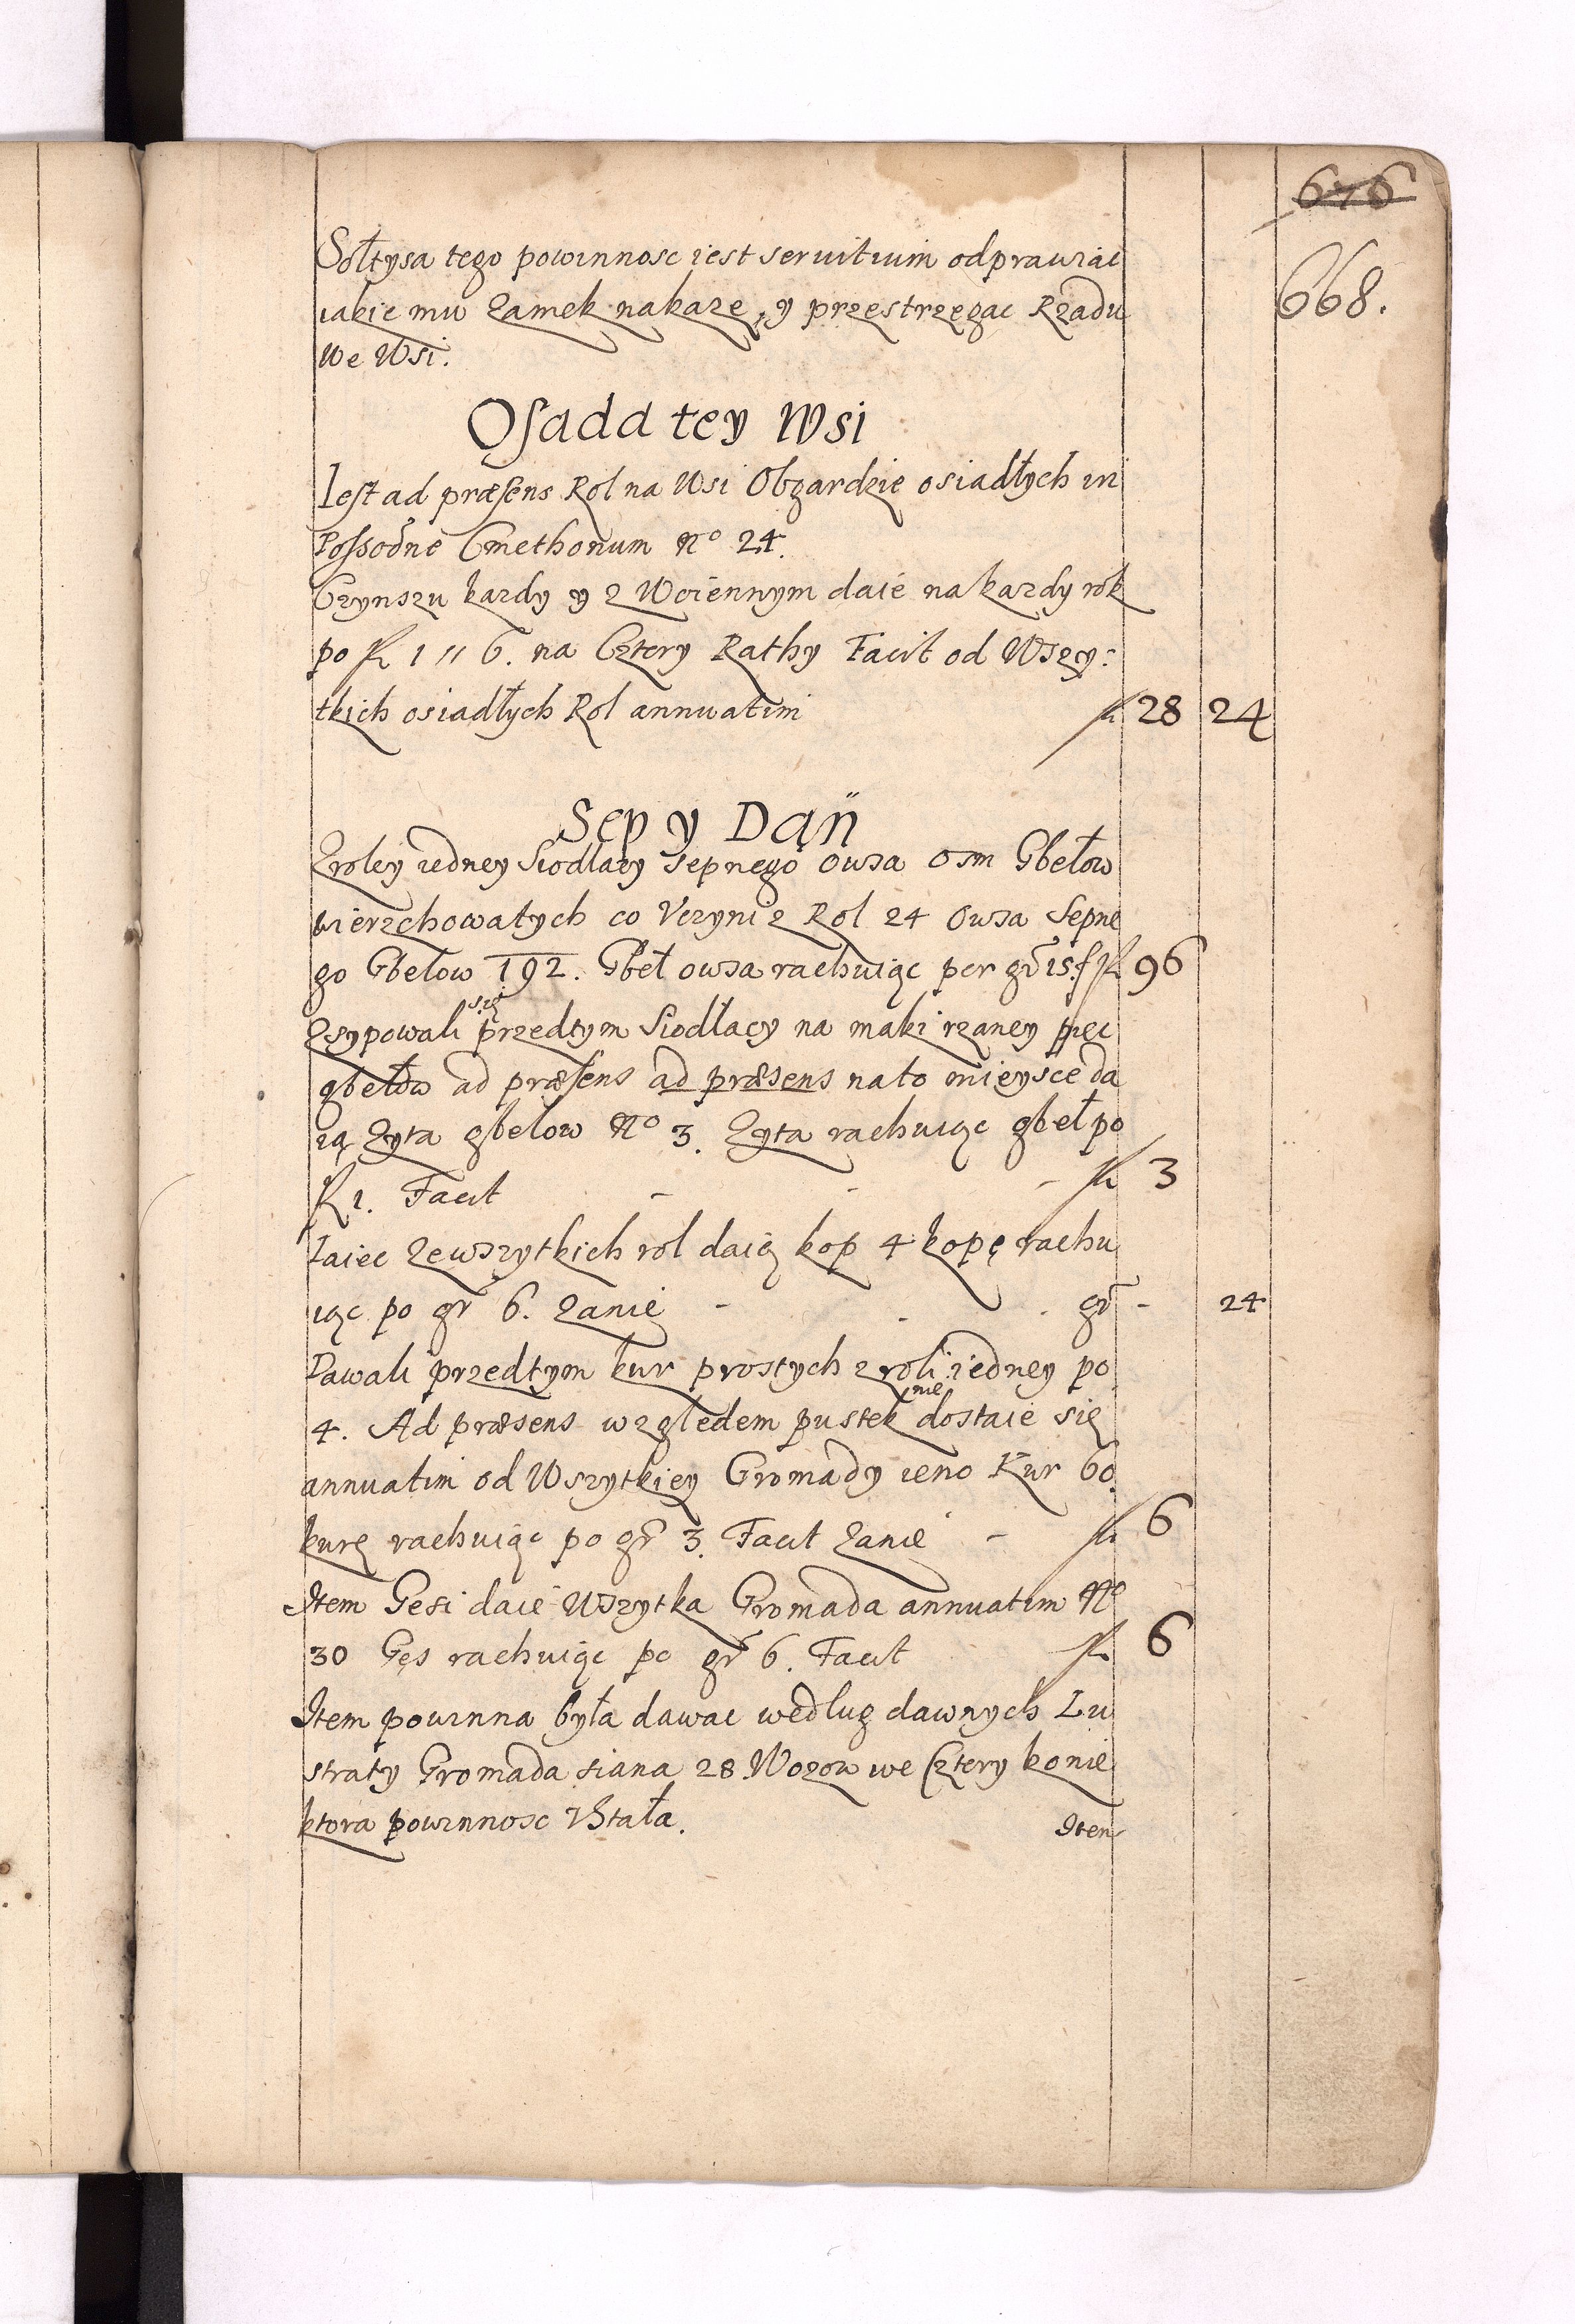 676
668.
Sołtysa tego powinnosc iest seruitium odprawiac
iakie mu Zamek nakaze, y przestrzegac Rządu
We Wsi.
Osada tey Wsi
Iest ad præsens Rol na Wsi Obgardzie osiadłych in
Possõne Cmethonum No 24.
Czynszu kazdy y z Wciennym daie na kazdy rok
po fl 1 " 6. na Cztery Rathy Facit od Wszy:
tkich osiadłych Rol annuatim fl 28 24
Sep y Dąn
Zroley iedney Siodlacy sepnego Owsa Osm Gbełow
wierzchowatych co Vczyni z Rol 24 Owsa Sepne
go Gbełow 192. Gbeł owsa rachuiąc per gr 15. f fl 96
Zsypowali się przedtym Siodłacy na mąki rzaney pięc
gbełow ad præsens ad præsens na to mieysce da
ią Zyta gbelow No 3. Zyta rachuiąc gbeł po
fl 1. Facit - - - fl 3
Iaiec Zewszytkich rol daią kop 4 kopę rachu
iąc po gr 6. Zanie - - - gr - 24
Dawali przedtym kur prostych z roli iedney po
4. Ad præsens względem pustek nie dostaie się
annuatim od Wszytkiey Gromady ieno Kur 60.
kurę rachuiąc po gr 3. Facit Zanie - fl 6
Item Gesi daie Wszytka Gromada annuatim No
30 Gęs rachuiąc po gr 6. Facit fl 6
Item powinna była dawac według dawnych Lu
straty Gromada siana 28 Wozow we Cztery konie
ktora powinnosc Vstała.
Item